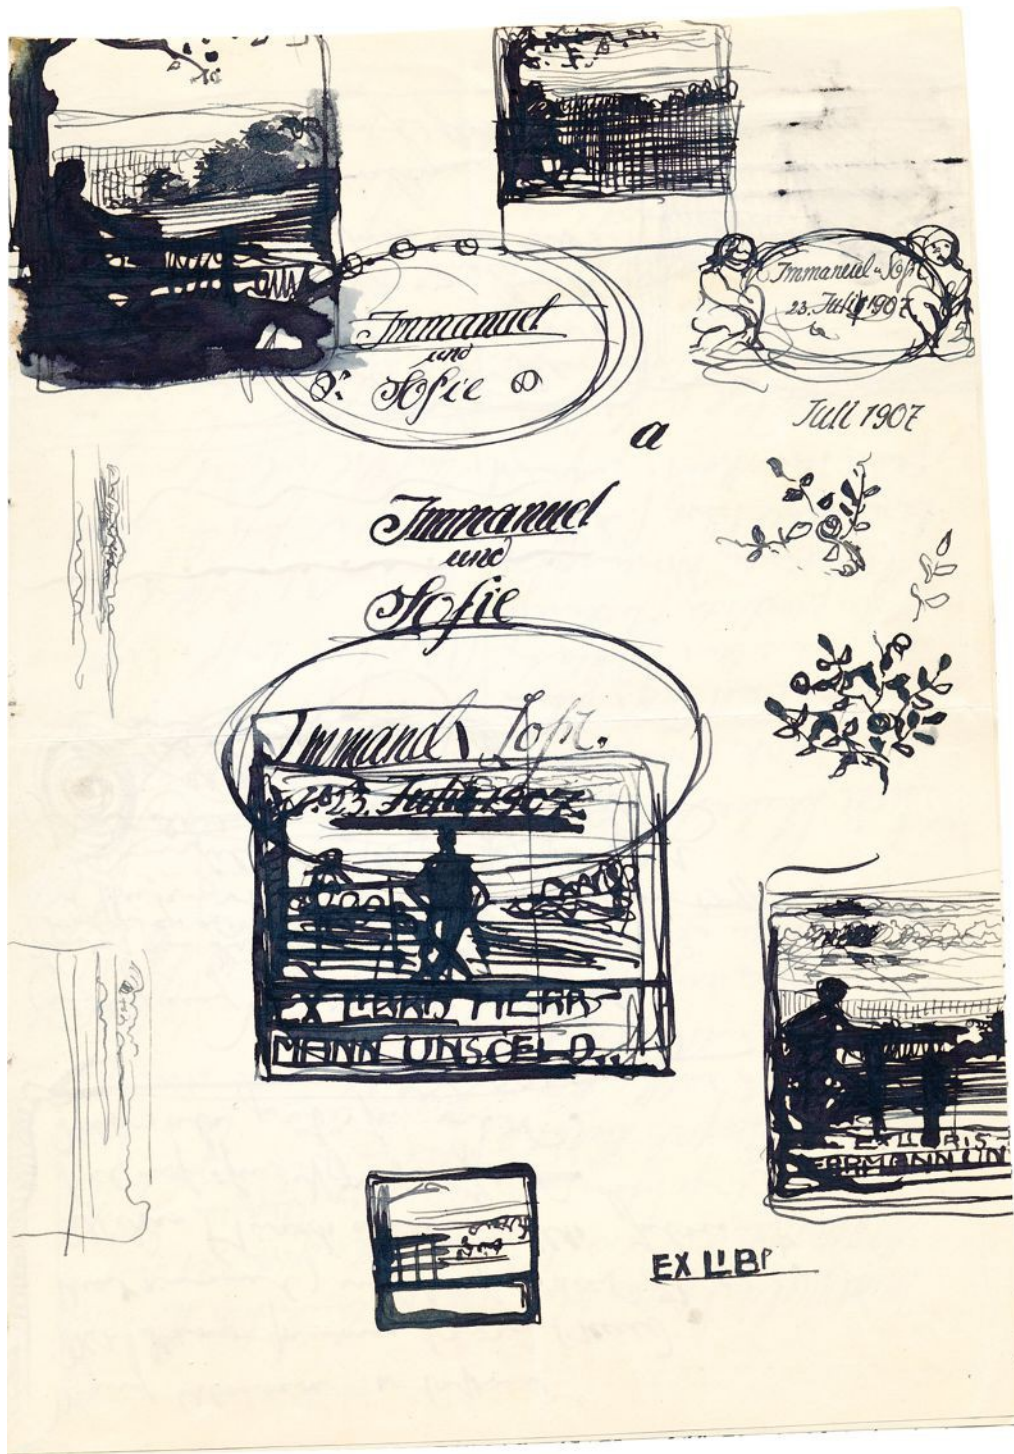 Immanuel
und
Sofie
Immanuel u Sofi
23. Juli 1907
Juli 1907
a
Immanuel
und
Sofie
Immanuel Sofi.
23. Juli 1907.
EX LIBRIS HERR-
MANN UNSGELD
EX LIBRIS
HERRMANN UN
EX LIB